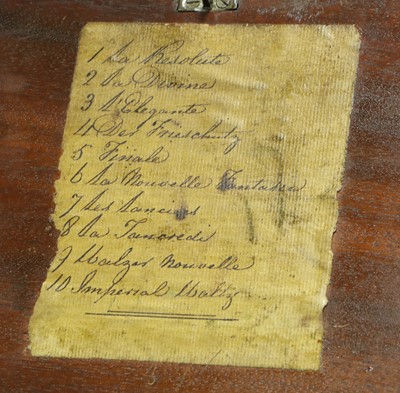 1 La Resolute
2 La Divine
3 L'Elegante
4 Der Freschutz
5 Finale
6 La Nouvelle Fantasie
7 Les Lanciers
8 La Tancredi
9 Walzer Nouvelle
10 Imperial Waltz